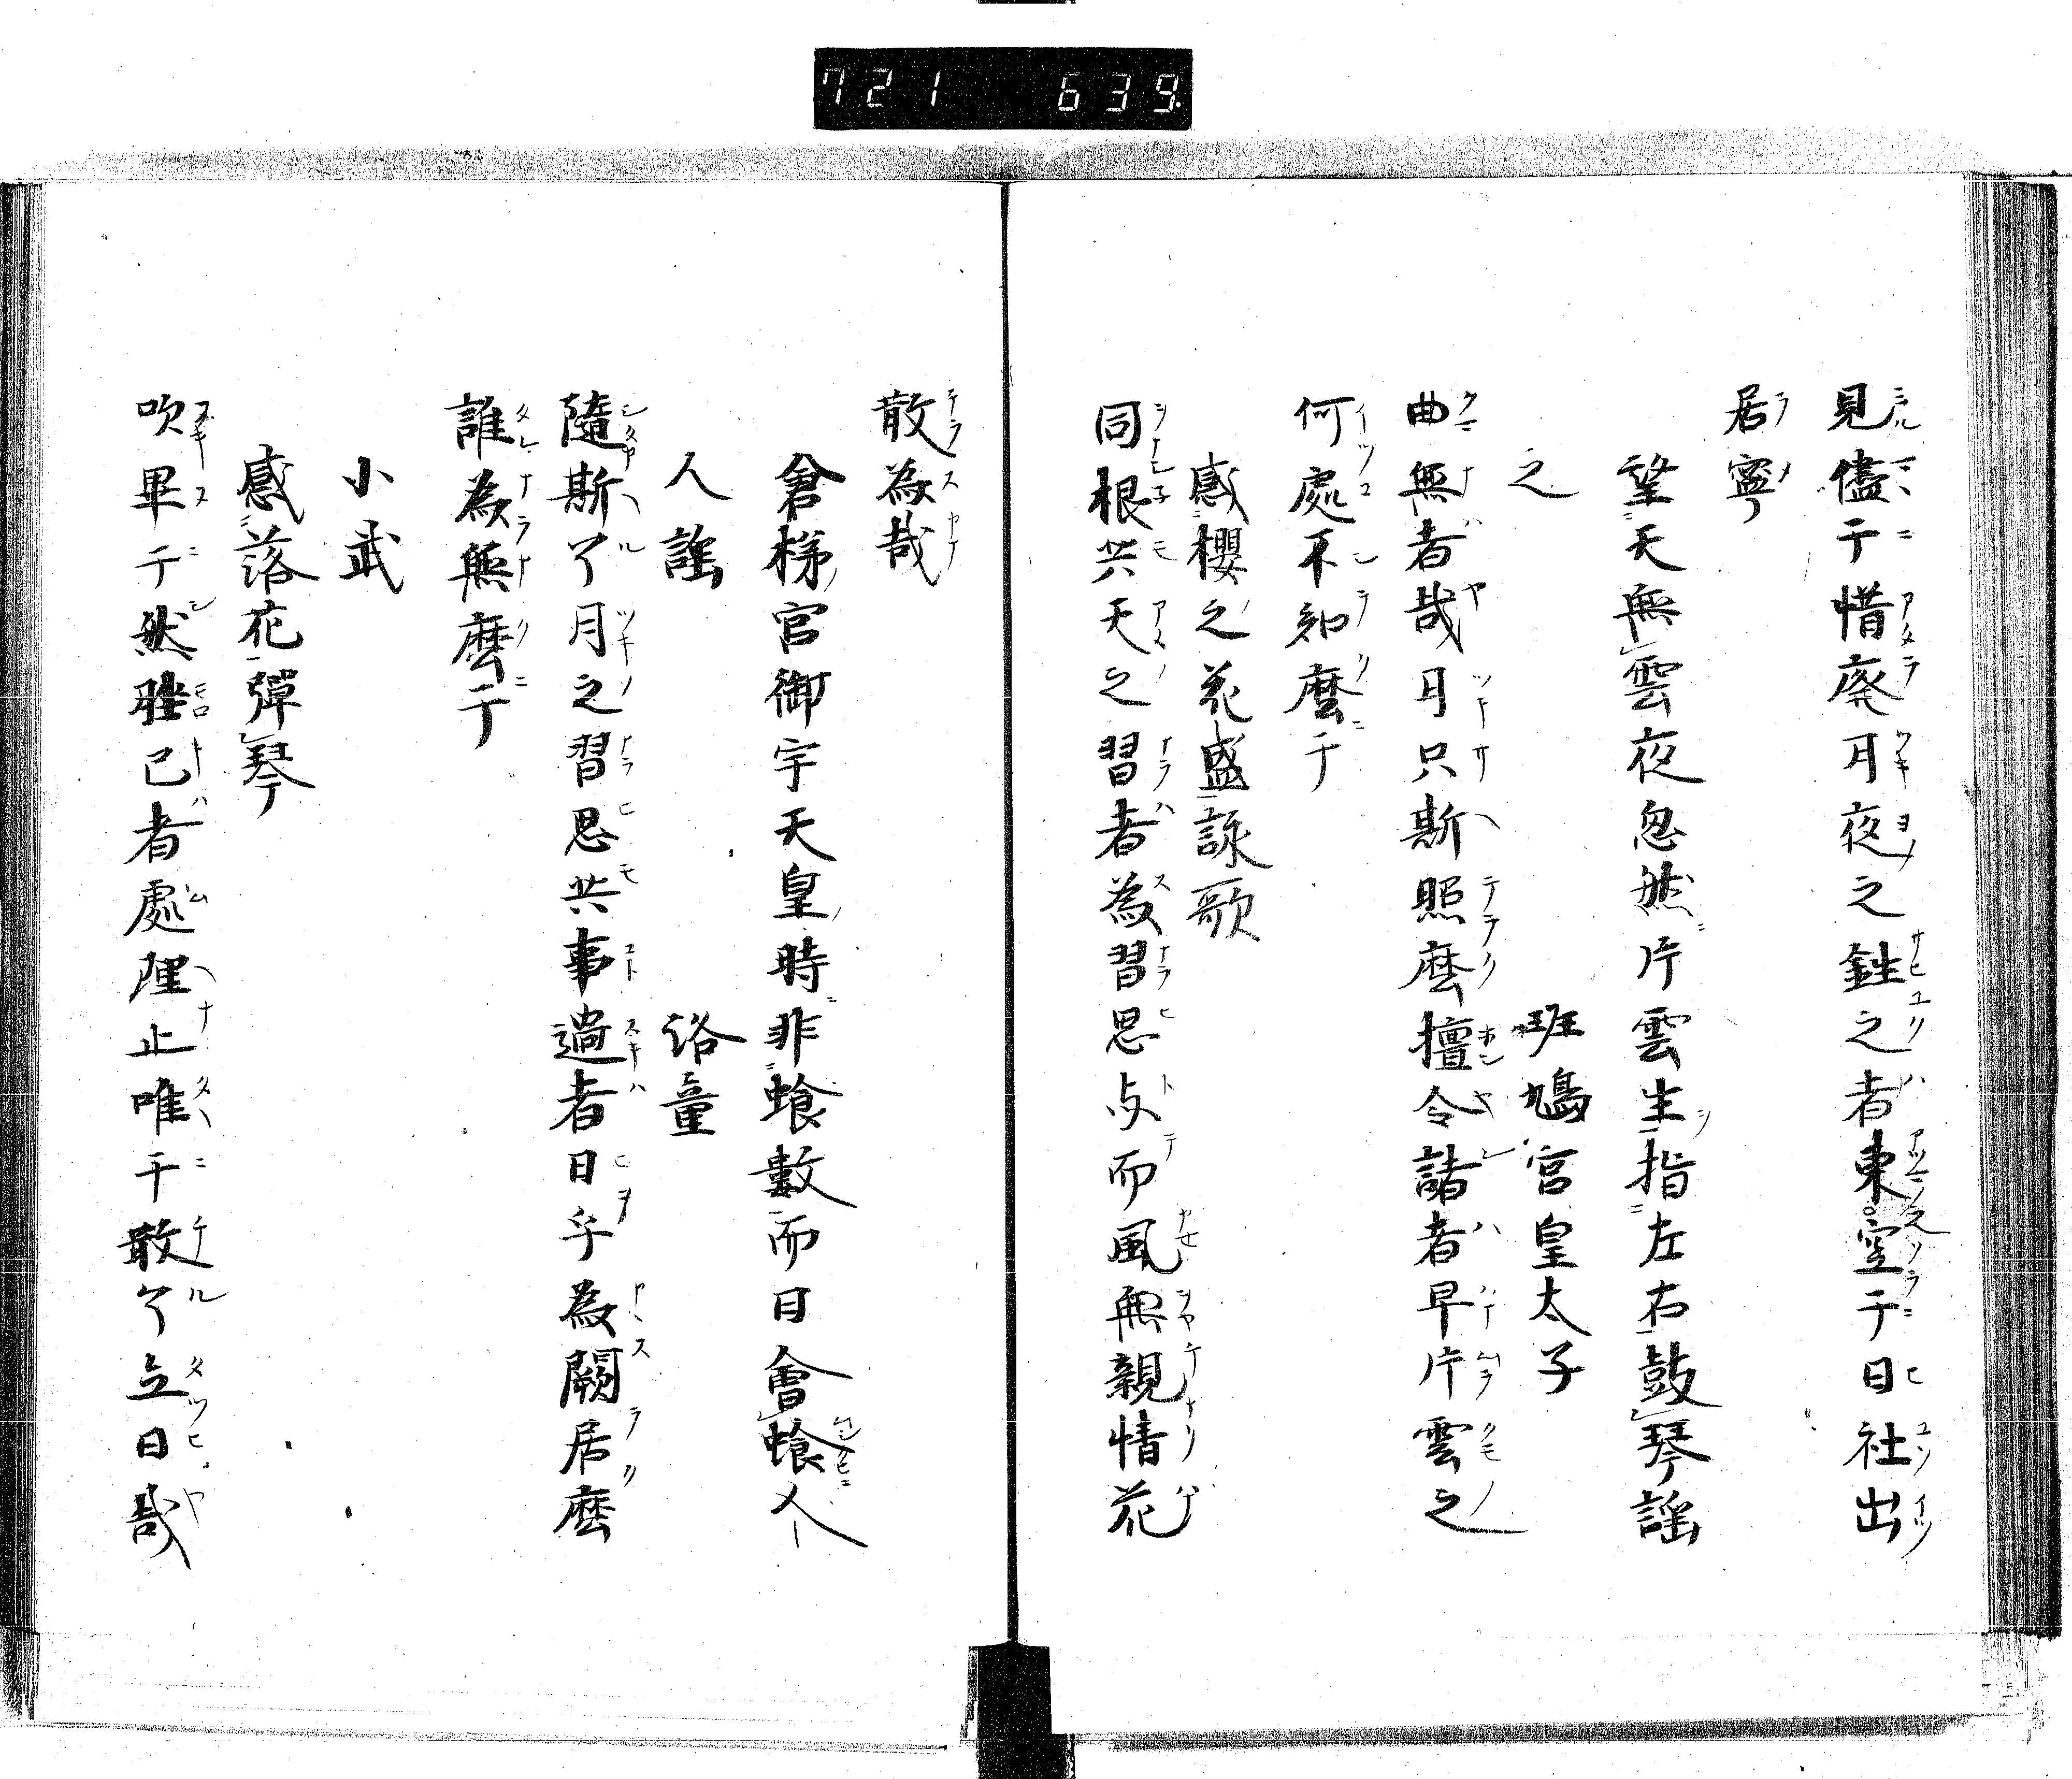 721 639
見儘于惜廃月夜之銼之者東空于日社出
居寧
望天無雲夜忽然片雲生指左右鼓琴謡
之 班鳩宮皇太子
曲無者哉月只斯照麼擅令諸者早片雲之
何處不知麼于
感櫻之花盛詠歌
同根共天之習者為習思与而風無親情花
散為哉
倉梯宮御宇天皇時非喰數而日會喰人
人謡 童
隨斯了月之習思共事過者日乎為闕居麼
誰為無麼于
小武
感落花彈琴
吹畢于然 己者處 止唯于散了立日哉